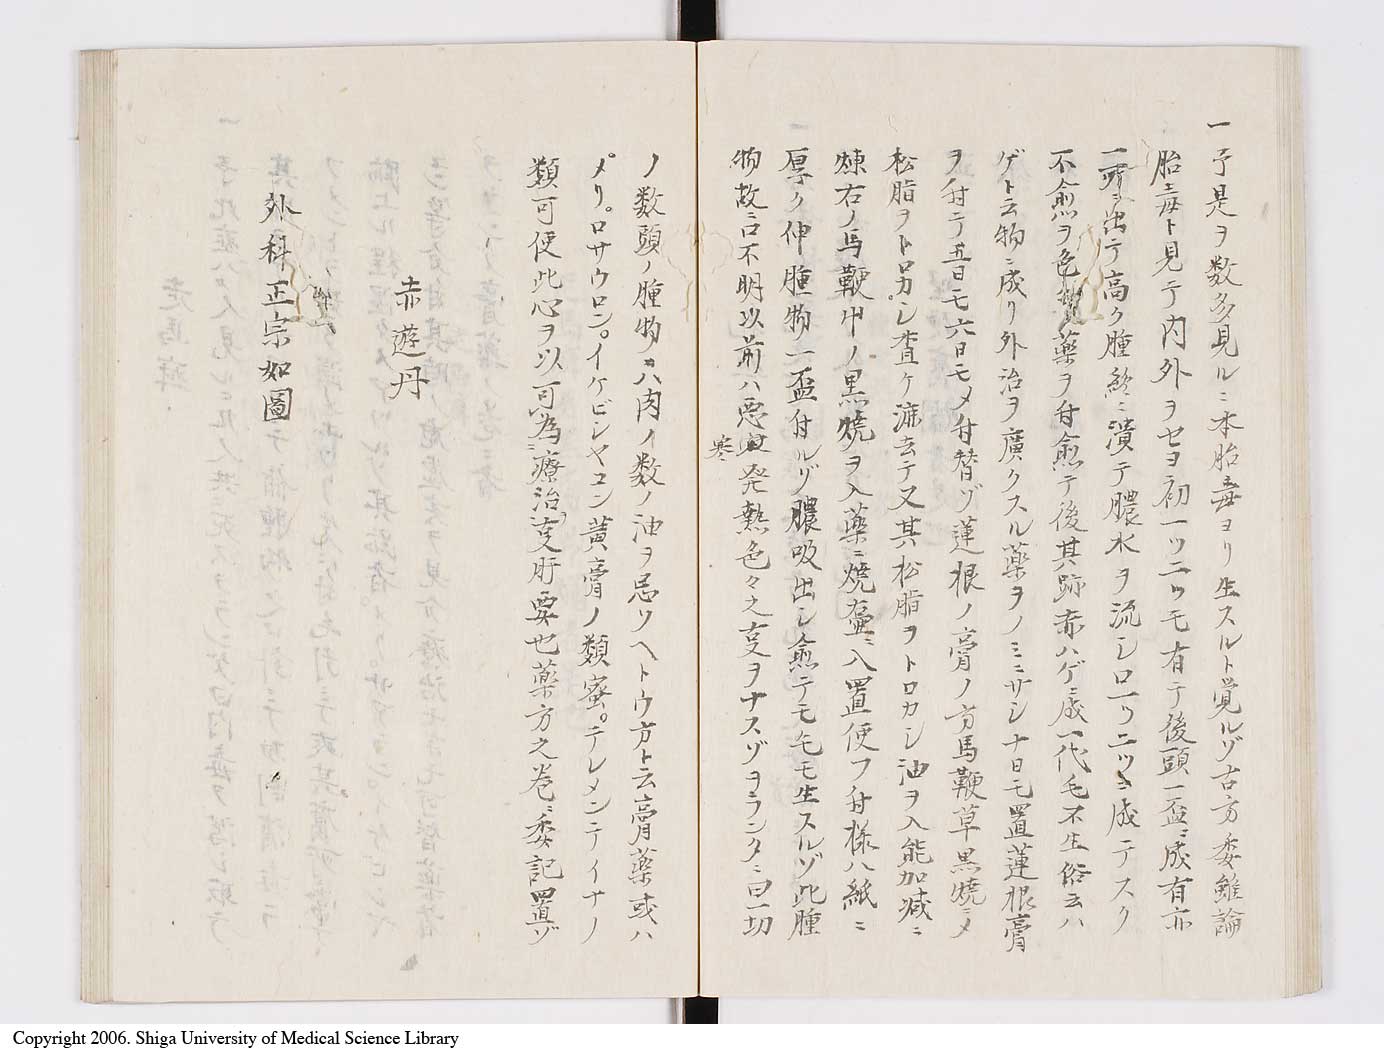 一予是ヲ数多見ルニ本胎毒ヨリ生スルト覚ルゾ古方委雖論
胎毒ト見テ内外ヲセヨ初一ツ二ツモ有テ後頭一盃ニ成有亦
一所ヨリ出テ高ク腫終ニ潰テ膿水ヲ流シ口一ツ二ツニ成テスク
不愈ヲ色々薬ヲ付愈テ後其跡赤ハゲニ成一代毛不生俗云ハ
ゲト云物ニ成リ外治ヲ廣クスル薬ヲノミニサシナ日モ置蓮根膏
ヲ付テ五日モ六日モメ付替ゾ蓮根ノ膏ノ方馬鞭草黒焼ニメ
松脂ヲトロカシ査ヲ漉去テ又其松脂ヲトロカシ油ヲ入能加減ニ
煉右ノ馬鞭艸ノ黒焼ヲ入薬ニ焼壺ニ入置便フ付様ハ紙ニ
厚ク伸腫物一盃付ルゾ膿吸出シ愈テモ毛モ生スルゾ此腫
物故ニ口不明以前ハ悪寒発熱色々之変ヲナスゾヲランタニ曰一切
ノ数頭ノ腫物ヲハ肉ノイ数ノ油ヲ忌ソヘトウ方ト云膏薬或ハ
メリ。ロサウロン。イケビシヤコン黄膏ノ類蜜。テレメンテイナノ
類可便此心ヲ以可為療治変肝要也薬方之巻ニ委記置ゾ
赤遊丹
外科正宗如圖
Copyright 2006. Shiga University of Medical Science Library